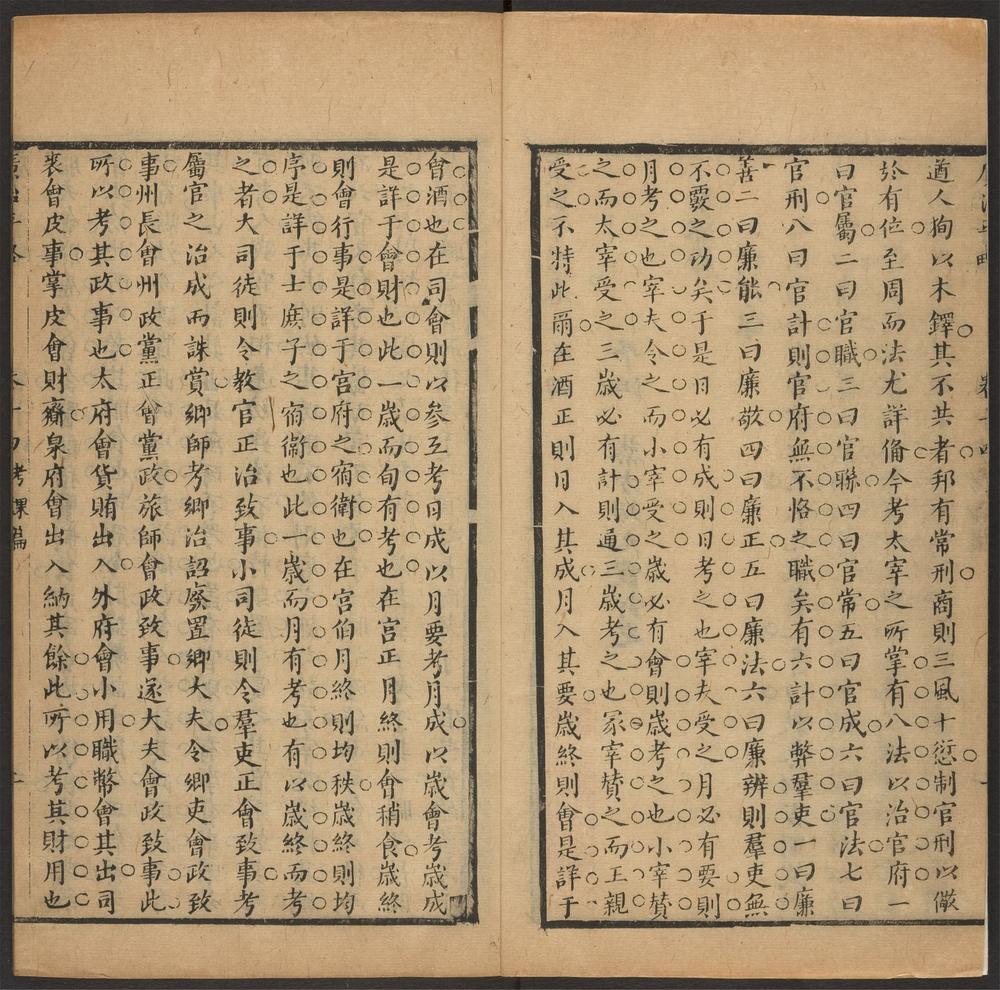 遒人狥以木鐸其不共者邦有常刑商則三風十愆制官刑以儆
於有位至周而法尤詳偹今考太宰之所掌有八法以治官府一
曰官屬二曰官職三曰官聯四曰官常五曰官成六曰官法七曰
官刑八曰官計則官府無不恪之職矣有六計以弊羣吏一曰廉
善二曰廉能三曰廉敬四曰廉正五曰廉法六曰廉辨則羣吏無
不覈之功矣于是日必有成則日考之也宰夫受之月必有要則
月考之也宰夫令之而小宰受之歲必有會則歲考之也小宰贊
之而太宰受之三歲必有計則通三歲考之也冢宰贊之而王親
受之不特此爾在酒正則日入其成月入其要歲終則會是詳于
會酒也在司會則以參互考日成以月要考月成以歲會考歲成
是詳于會財也此一歲而旬有考也在宫正月終則會稍食歲終
則會行事是詳于宫府之宿衛也在宫伯月終則均秩歲終則均
序是詳于士庶子之宿衞也此一歲而月有考也有以歲終而考
之者大司徒則令教官正治致事小司徒則令羣吏正會致事考
屬官之治成而誅賞鄉師考鄉治詔廢置鄉大夫令鄉吏會政致
事州長會州政黨正會黨政旅師會政致事遂大夫會政致事此
所以考其政事也太府會貨賄出入外府會小用職幣會其出司
裘會皮事掌皮會財齎泉府會出入納其餘此所以考其財用也
考課篇